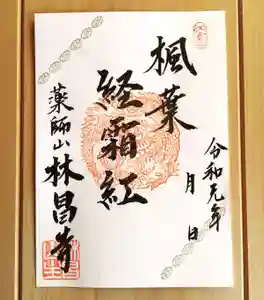 楓葉
経霜紅
令和元年
月 日
薬師山 林昌寺